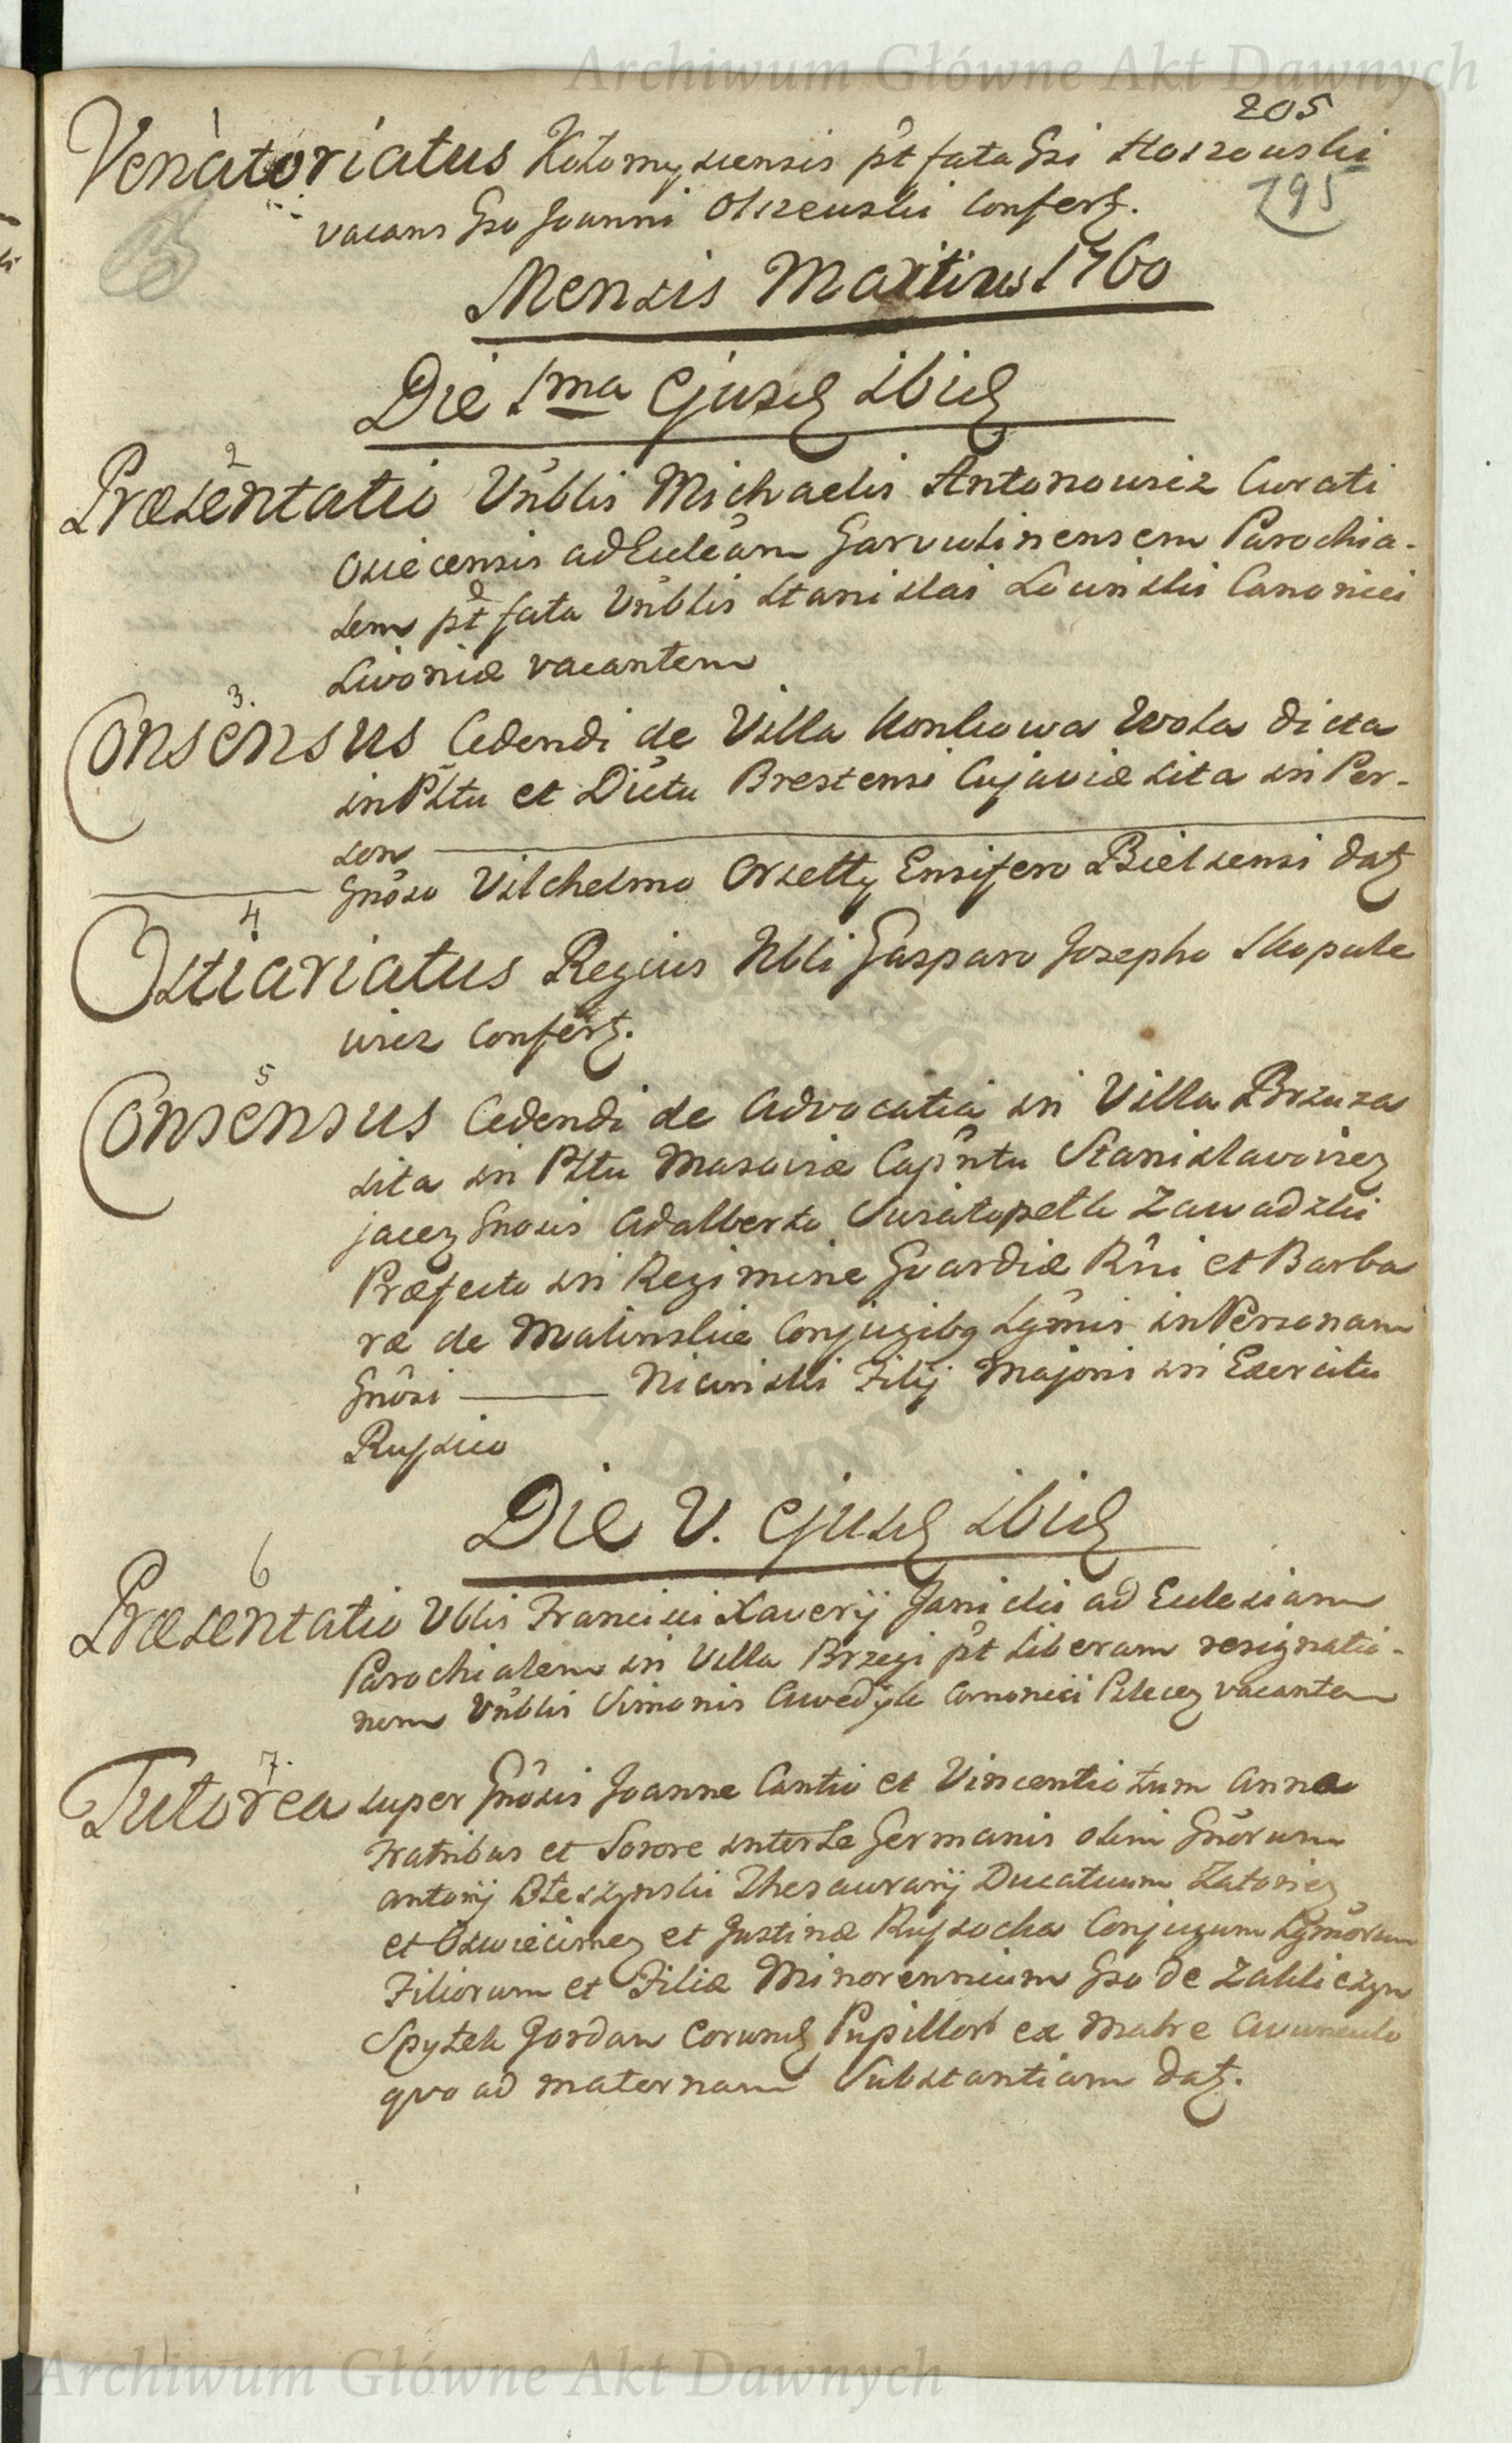 Archiwum Główne Akt Dawnych
205
195
1
Venatoriatus Kołomysiensis p̃t fata Gsi Hoszowski
vacans Gso Joanni Olszewski Confert.
Mensis Martius 1760
Die 1ma Ejusd ibid
2
Præsentatio Vnblis Michaelis Antonowicz Curati
Osiecensis ad Eccleãm Garvolinensem Parochia-
lem p̃t fata Vnblis Stanislai Łowinski Canonici
Livoniæ vacantem
3.
Consensus Cedendi de Villa Konkowa Wola dicta
in Pltu et Dictu Brestensi Cujaviæ sita in Per-
son
Gnõso Vilchelmo Orsetty Ensifero Bielsensi datz
4
Ostiariatus Regius Nbli Gasparo Josepho Skopule
wicz Confert.
5
Consensus Cedendi de Advocatia in Villa Brzuza
sita in Pltu Masoviæ Capñtu Stanislavoviez
jacez Gnosis Adalberto Swiatopełk Zawadzki
Præfecto in Regimine Guardiæ Rñi et Barba
ræ de Malinskie Conjugibq Lgmis in Personam
Gnõsi ——— Niewiski Filij Majoris in Exercitu
Russico
Die V. ejusd ibid
6
Præsentatio Vblis Francisci Xaverij Janicki ad Ecclesiam
Parochialem in Villa Brzegi p̃t liberam resignatio-
nem Vnblis Simonis Cwedzik Canonici Pilecez vacantem
7.
Tutorea super Gnõsis Joanne Cantio et Vincentio tum Anna
Fratribus et Sorore inter se Germanis olim Gnõrum
Antonij Błeszynski Thesaurarij Ducatuum Zatoriez
et Oswiecimez et Justinæ Russocka Conjugum Lgmõrum
Filiorum et Filiæ Minorennium Gso de Zakliczyn
Spytek Jordan Corumd Pupillor ex Matre Avunculo
quo ad maternam Substantiam datz.
Archiwum Główne Akt Dawnych